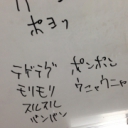 ポヨッ
テドテグ
モリモリ
スルスル
バンバン
ポンポン
ウニャウニャ